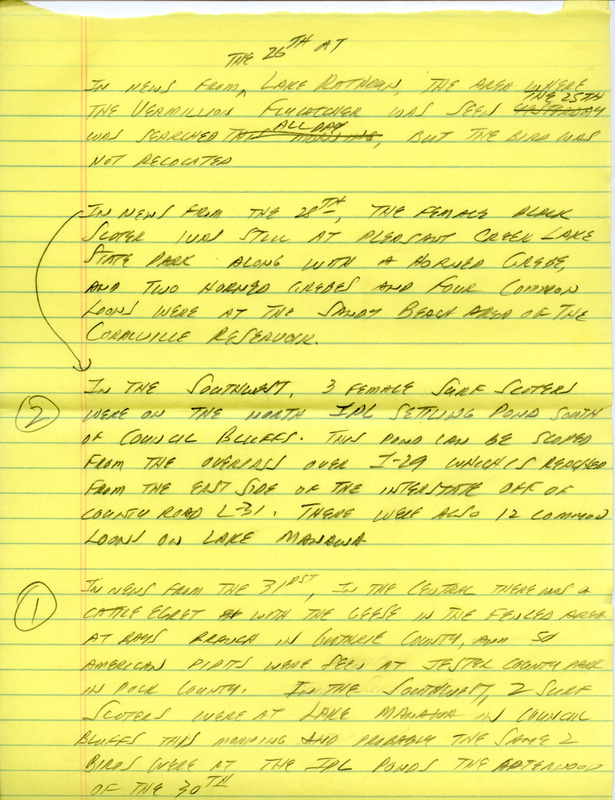 THE 26TH AT
IN NEWS FROM, LAKE RATHBUN, THE AREA WHERE
THE VERMILLION FLYCATCHER WAS SEEN THE 25TH
WAS SEARCHED ALL DAY, BUT THE BIRD WAS
NOT RELOCATED
IN NEWS FROM THE 28TH, THE FEMALE BLACK
SCOTER WAS STILL AT PLEASANT CREEK LAKE
STATE PARK ALONG WITH A HORNED GREBE,
AND TWO HORNED GREBES AND FOUR COMMON
LOONS WERE AT THE SANDY BEACH AREA OF THE
CORALVILLE RESERVOIR.
2
IN THE SOUTHWEST, 3 FEMALE SURF SCOTERS
WERE ON THE NORTH IPL SETTLING POND SOUTH
OF COUNCIL BLUFFS. THIS POND CAN BE SCOPED
FROM THE OVERPASS OVER I-29 WHICH IS REACHED
FROM THE EAST SIDE OF THE INTERSTATE OFF OF
COUNTY ROAD L-31. THERE WERE ALSO 12 COMMON
LOONS ON LAKE MANAWA
1
IN NEWS FROM THE 31RST, IN THE CENTRAL THERE WAS A
CATTLE EGRET WITH THE GEESE IN THE FENCED AREA
AT BAYS BRANCH IN GUTHRIE COUNTY, AND 50
AMERICAN PIPITS WERE SEEN AT JESTER COUNTY PARK
IN POLK COUNTY. IN THE SOUTHWEST, 2 SURF
SCOTERS WERE AT LAKE MANAWA IN COUNCIL
BLUFFS THIS MORNING AND PROBABLY THE SAME 2
BIRDS WERE AT THE IPL PONDS THE AFTERNOON
OF THE 30TH